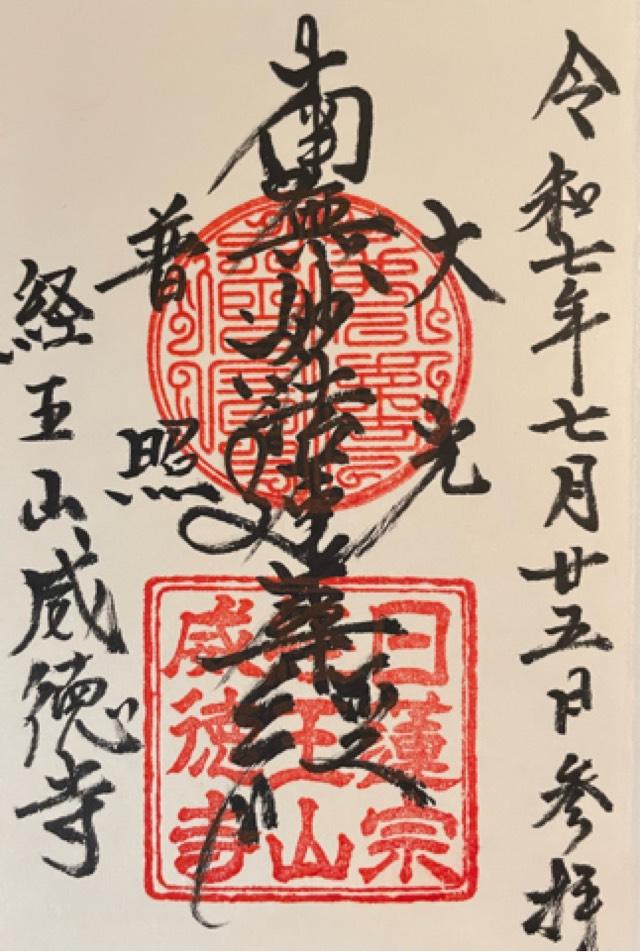 令和七年七月廿五日参拝
大光
普照
南無妙法蓮華経
経王山威徳寺
日蓮宗
経王山
威徳寺